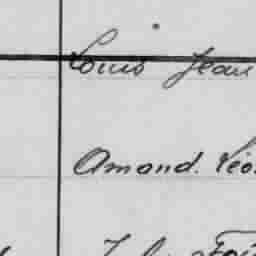 Louis Jean
Amand. Léo